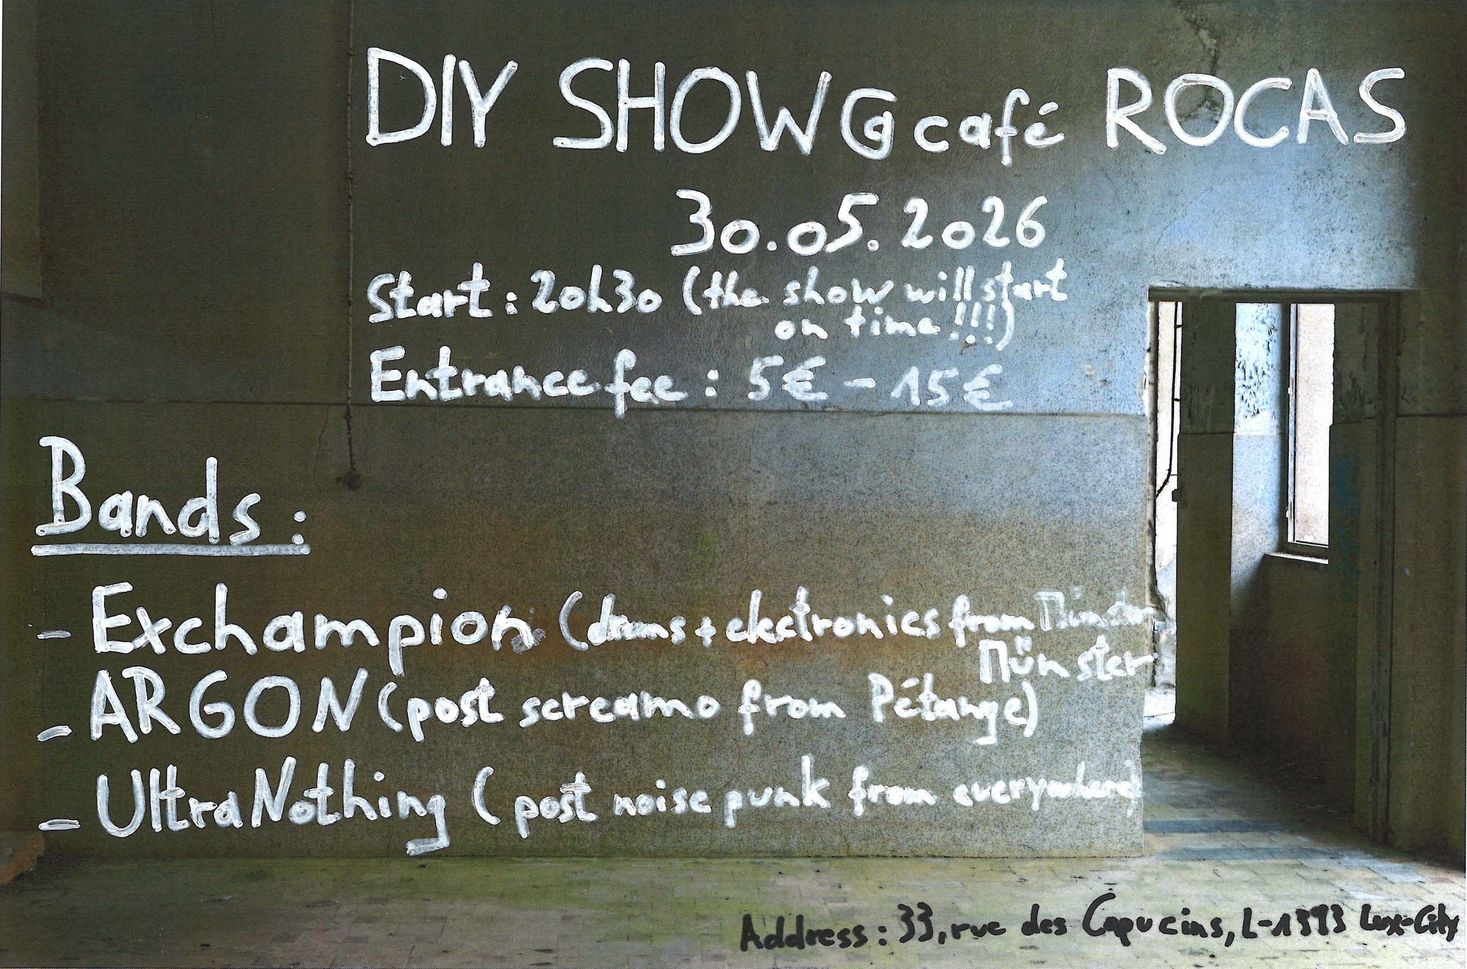 DIY SHOW @ café ROCAS
30.05.2026
Start : 20h30 (the show will start
on time !!!)
Entrance fee : 5€ - 15€
Bands :
- Exchampion (drums + electronics from Münster
Münster
- ARGON (post screamo from Pétange)
- UltraNothing (post noise punk from everywhere)
Address : 33, rue des Capucins, L-1313 Lux-City